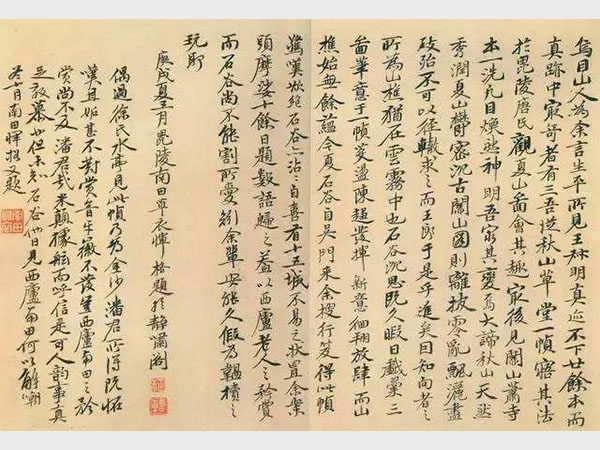 烏目山人為余言生平所見王叔明真跡不下廿餘本而
真跡中最奇者有三吾從秋山草堂一幀寤其法
於毘陵唐氏觀夏山圖會其趣最後見關山蕭寺
本一洗凡目煥然神明吾窮其變焉大諦秋山天然
秀潤夏山鬱密沉古關山圖則離披零亂飄灑盡
致殆不可以徑轍求之而王郎于是乎進矣因知向者之
所為山樵猶在雲霧中也石谷沉思既久暇日戲彙三
圖筆意于一幀芟盪陳趨發揮新意徊翔放肆而山
樵始無餘蘊今夏石谷自吳門來余搜行笈得此幀
驚嘆欲絕石谷亦沾沾自喜有十五城不易之狀置余案
頭摩娑十餘日題數語歸之蓋以西廬老人之矜賞
而石谷尚不能割所愛矧余輩安能久假為韞櫝之
玩耶
庚戌夏五月毘陵南田草衣惲格題於靜嘯閣
偶過徐氏水亭見此幀乃為金沙潘君所得既怪
嘆且妬甚不對賞音牙徽不發豈西廬南田之矜
賞尚不及潘君哉米顛據舷而呼信是可人韻事真
足效慕也但未知石谷他日見西廬南田何以解嘲
冬十月南田惲格又題